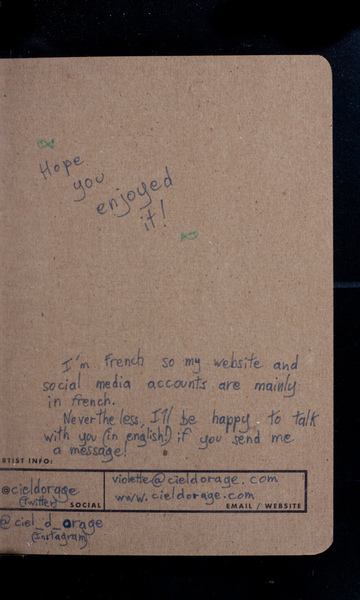 Hope
you
enjoyed
it!
I'm French so my website and
social media accounts are mainly
in french.
Nevertheless, I'll be happy to talk
with you (in english!) if you send me
a message!
RTIST INFO:
@cieldorage
(Twitter) SOCIAL
violette@cieldorage.com
www.cieldorage.com
EMAIL / WEBSITE
@ciel_d_orage
(Instagram)